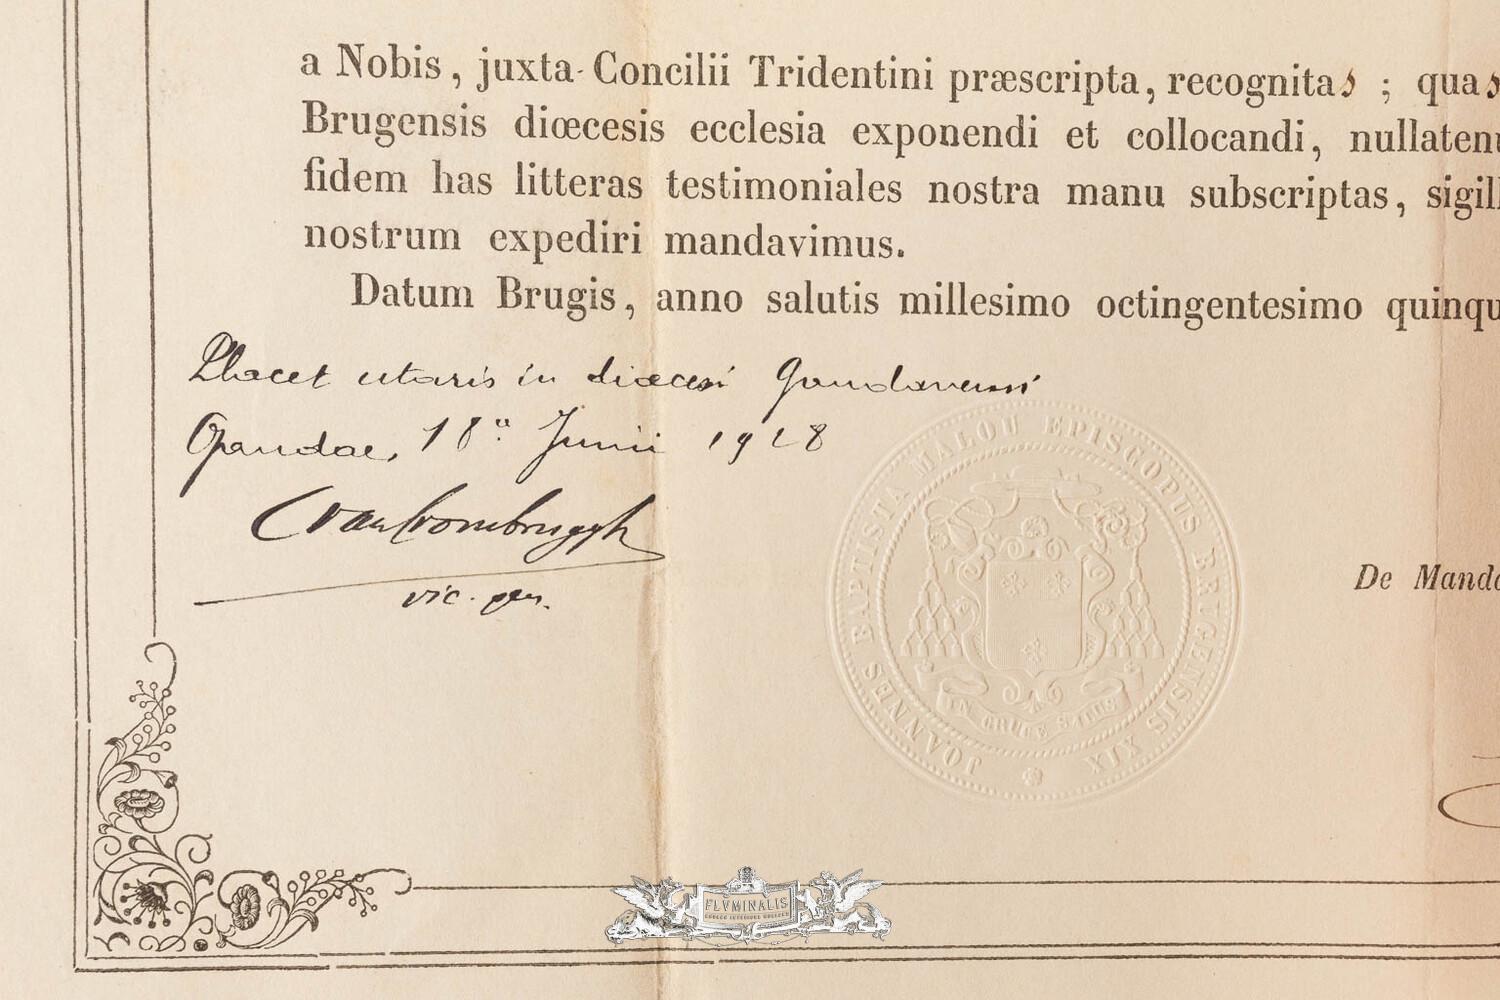 a Nobis, juxta Concilii Tridentini præscripta, recognitas ; quas
Brugensis diœcesis ecclesia exponendi et collocandi, nullatenu
fidem has litteras testimoniales nostra manu subscriptas, sigill
nostrum expediri mandavimus.
Datum Brugis, anno salutis millesimo octingentesimo quinqu
Placet utaris in diœcesi Gandavensi
Gandae, 18ª Junii 1928
C van Crombrugghe
vic. gen.
JOANNES BAPTISTA MALOU EPISCOPUS BRUGENSIS XIX
IN CRUCE SALUS
De Manda
FLVMINALIS